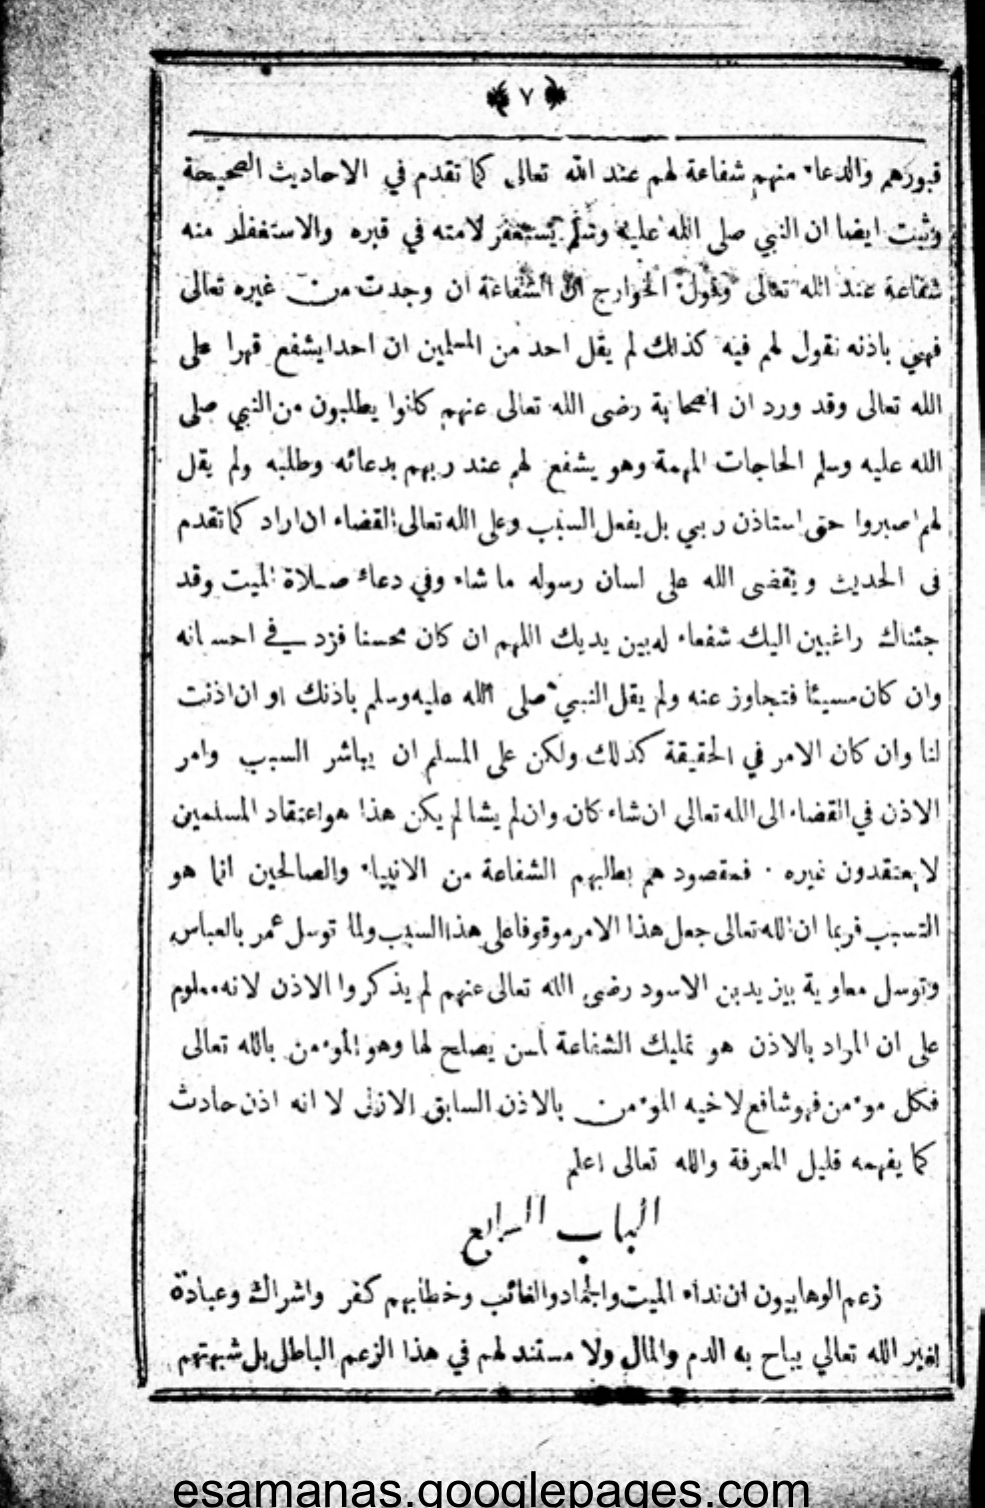 ﴿ ٧ ﴾
قبورهم والدعاء منهم شفاعة لهم عند الله تعالى كما تقدم في الاحاديث الصحيحة
وثبت ايضا ان النبي صلى الله عليه وسلم يستغفر لامته في قبره والاستغفار منه
شفاعة عند الله تعالى وبقول الخوارج ان الشفاعة ان وجدت من غيره تعالى
فهي باذنه نقول لهم فيه كذلك لم يقل احد من المسلمين ان احدا يشفع قهرا على
الله تعالى وقد ورد ان الصحابة رضى الله تعالى عنهم كانوا يطلبون من النبي صلى
الله عليه وسلم الحاجات المهمة وهو يشفع لهم عند ربهم بدعائه وطلبه ولم يقل
لهم اصبروا حتى استاذن ربي بل يفعل السبب وعلى الله تعالى القضاء ان اراد كما تقدم
فى الحديث ويقضى الله على لسان رسوله ما شاء وفي دعاء صلاة الميت وقد
جئناك راغبين اليك شفعاء له بين يديك اللهم ان كان محسنا فزد في احسانه
وان كان مسيئا فتجاوز عنه ولم يقل النبي صلى الله عليه وسلم باذنك او ان اذنت
لنا وان كان الامر في الحقيقة كذلك ولكن على المسلم ان يباشر السبب وامر
الاذن في القضاء الى الله تعالى ان شاء كان وان لم يشا لم يكن هذا هو اعتقاد المسلمين
لا يعتقدون غيره · فمقصود هم بطلبهم الشفاعة من الانبياء والصالحين انما هو
التسبب فربما ان الله تعالى جعل هذا الامر موقوفا على هذا السبب ولما توسل عمر بالعباس
وتوسل معاوية بيزيد بن الاسود رضى الله تعالى عنهم لم يذكروا الاذن لانه معلوم
على ان المراد بالاذن هو تمليك الشفاعة لمن يصلح لها وهو المؤمن بالله تعالى
فكل مؤمن فهو شافع لاخيه المؤمن بالاذن السابق الازلى لا انه اذن حادث
كما يفهمه قليل المعرفة والله تعالى اعلم
الباب الرابع
زعم الوهابيون ان نداء الميت والجماد والغائب وخطابهم كفر واشراك وعبادة
لغير الله تعالي يباح به الدم والمال ولا مستند لهم في هذا الزعم الباطل بل شبهتهم
esamanas.googlepages.com